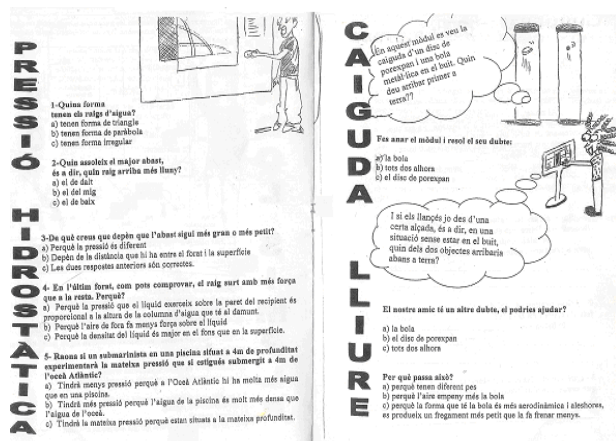 PRESSIÓ HIDROSTÀTICA
1-Quina forma
tenen els raigs d'aigua?
a) tenen forma de triangle
b) tenen forma de paràbola
c) tenen forma irregular
2-Quin assoleix el major abast,
és a dir, quin raig arriba més lluny?
a) el de dalt
b) el del mig
c) el de baix
3-De què creus que depèn que l'abast sigui més gran o més petit?
a) Perquè la pressió és diferent
b) Depèn de la distància que hi ha entre el forat i la superfície
c) Les dues respostes anteriors són correctes.
4- En l'últim forat, com pots comprovar, el raig surt amb més força
que a la resta. Perquè?
a) Perquè la pressió que el líquid exerceix sobre la paret del recipient és
proporcional a la altura de la columna d'aigua que té al damunt.
b) Perquè l'aire de fora fa menys força sobre el líquid
c) Perquè la densitat del líquid és major en el fons que en la superfície.
5- Raona si un submarinista en una piscina situat a 4m de profunditat
experimentarà la mateixa pressió que si estigués submergit a 4m de
l'oceà Atlàntic?
a) Tindrà menys pressió perquè a l'Oceà Atlàntic hi ha molta més aigua
que en una piscina.
b) Tindrà més pressió perquè l'aigua de la piscina és molt més densa que
l'aigua de l'oceà.
c) Tindrà la mateixa pressió perquè estan situats a la mateixa profunditat.
CAIGUDA LLIURE
En aquest mòdul es veu la
caiguda d'un disc de
porexpan i una bola
metàl·lica en el buit. Quin
deu arribar primer a
terra??
Fes anar el mòdul i resol el seu dubte:
a) la bola
b) tots dos alhora
c) el disc de porexpan
I si els llancés jo des d'una
certa alçada, és a dir, en una
situació sense estar en el buit,
quin dels dos objectes arribaria
abans a terra?
El nostre amic té un altre dubte, el podries ajudar?
a) la bola
b) el disc de porexpan
c) tots dos alhora
Per què passa això?
a) perquè tenen diferent pes
b) perquè l'aire empeny més la bola
c) perquè la forma que té la bola és més aerodinàmica i aleshores,
es produeix un fregament més petit que la fa frenar menys.